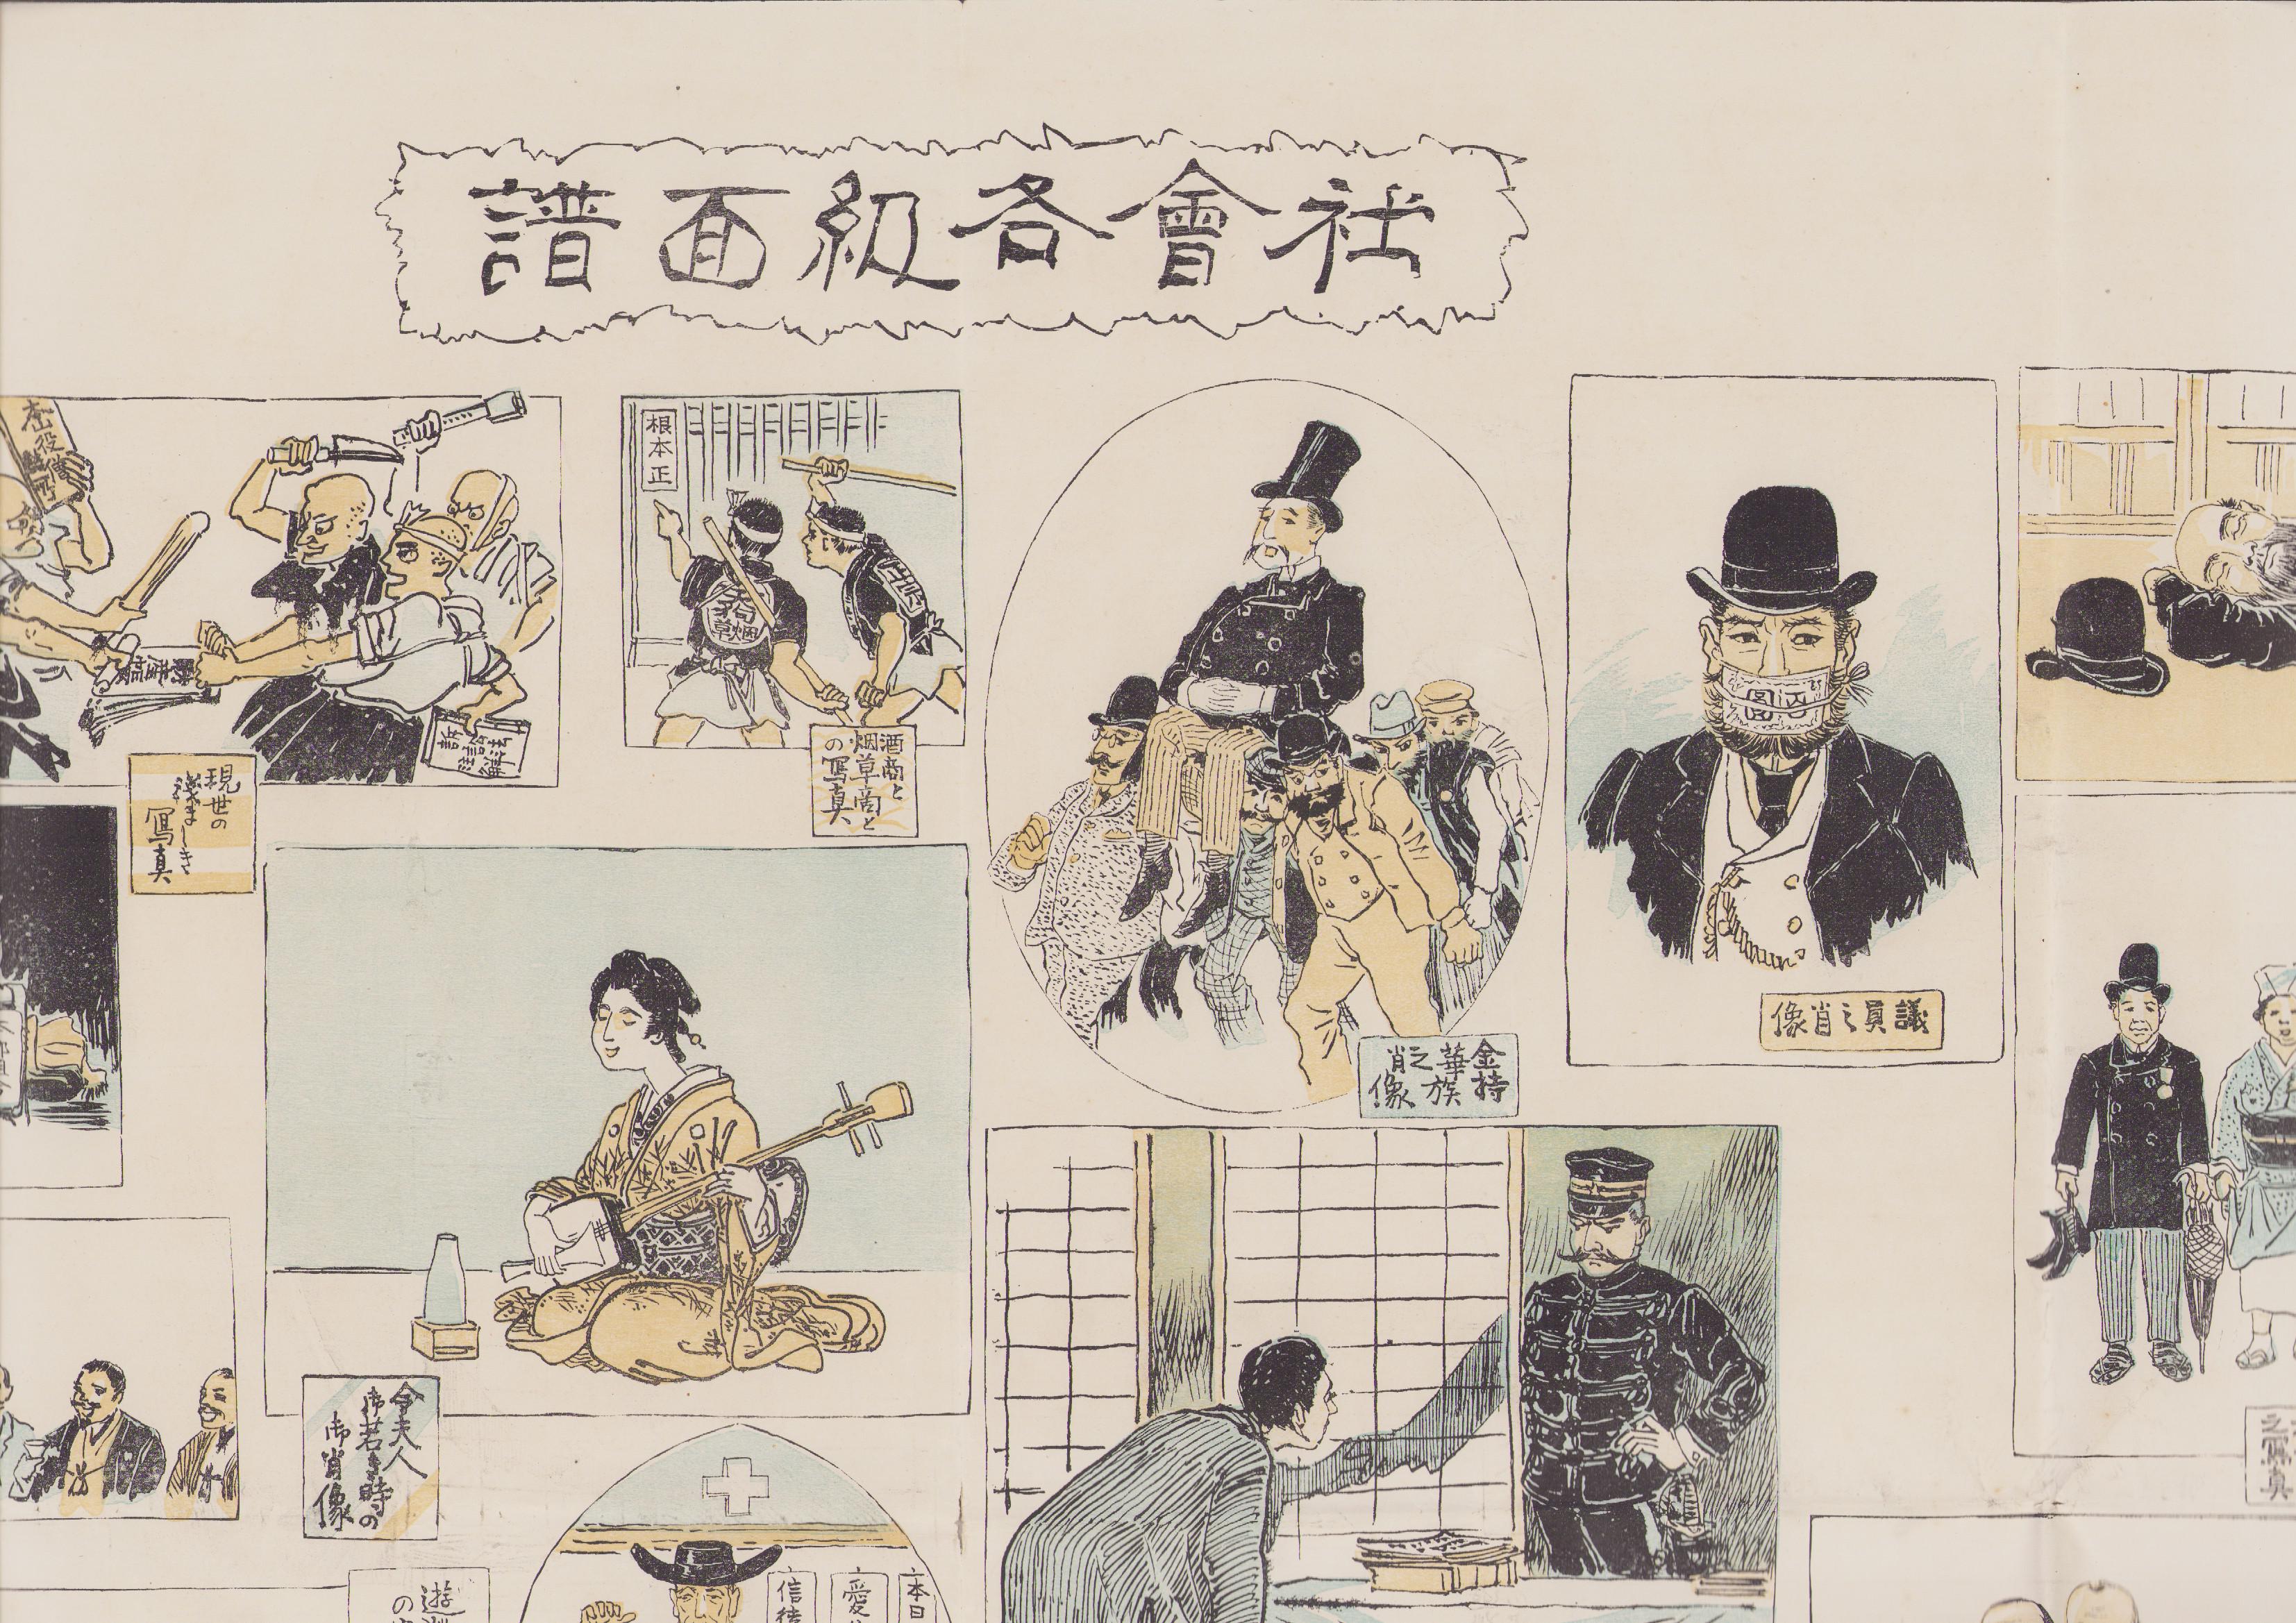 社會各級面譜
議員之肖像
金持
華族
之肖
像
根本正
酒商と
烟草商と
の寫真
現世の
淺ましき
寫真
財産
訴訟法
註解
令夫人
御若き時の
御肖像
之寫真
本日
愛
信徒